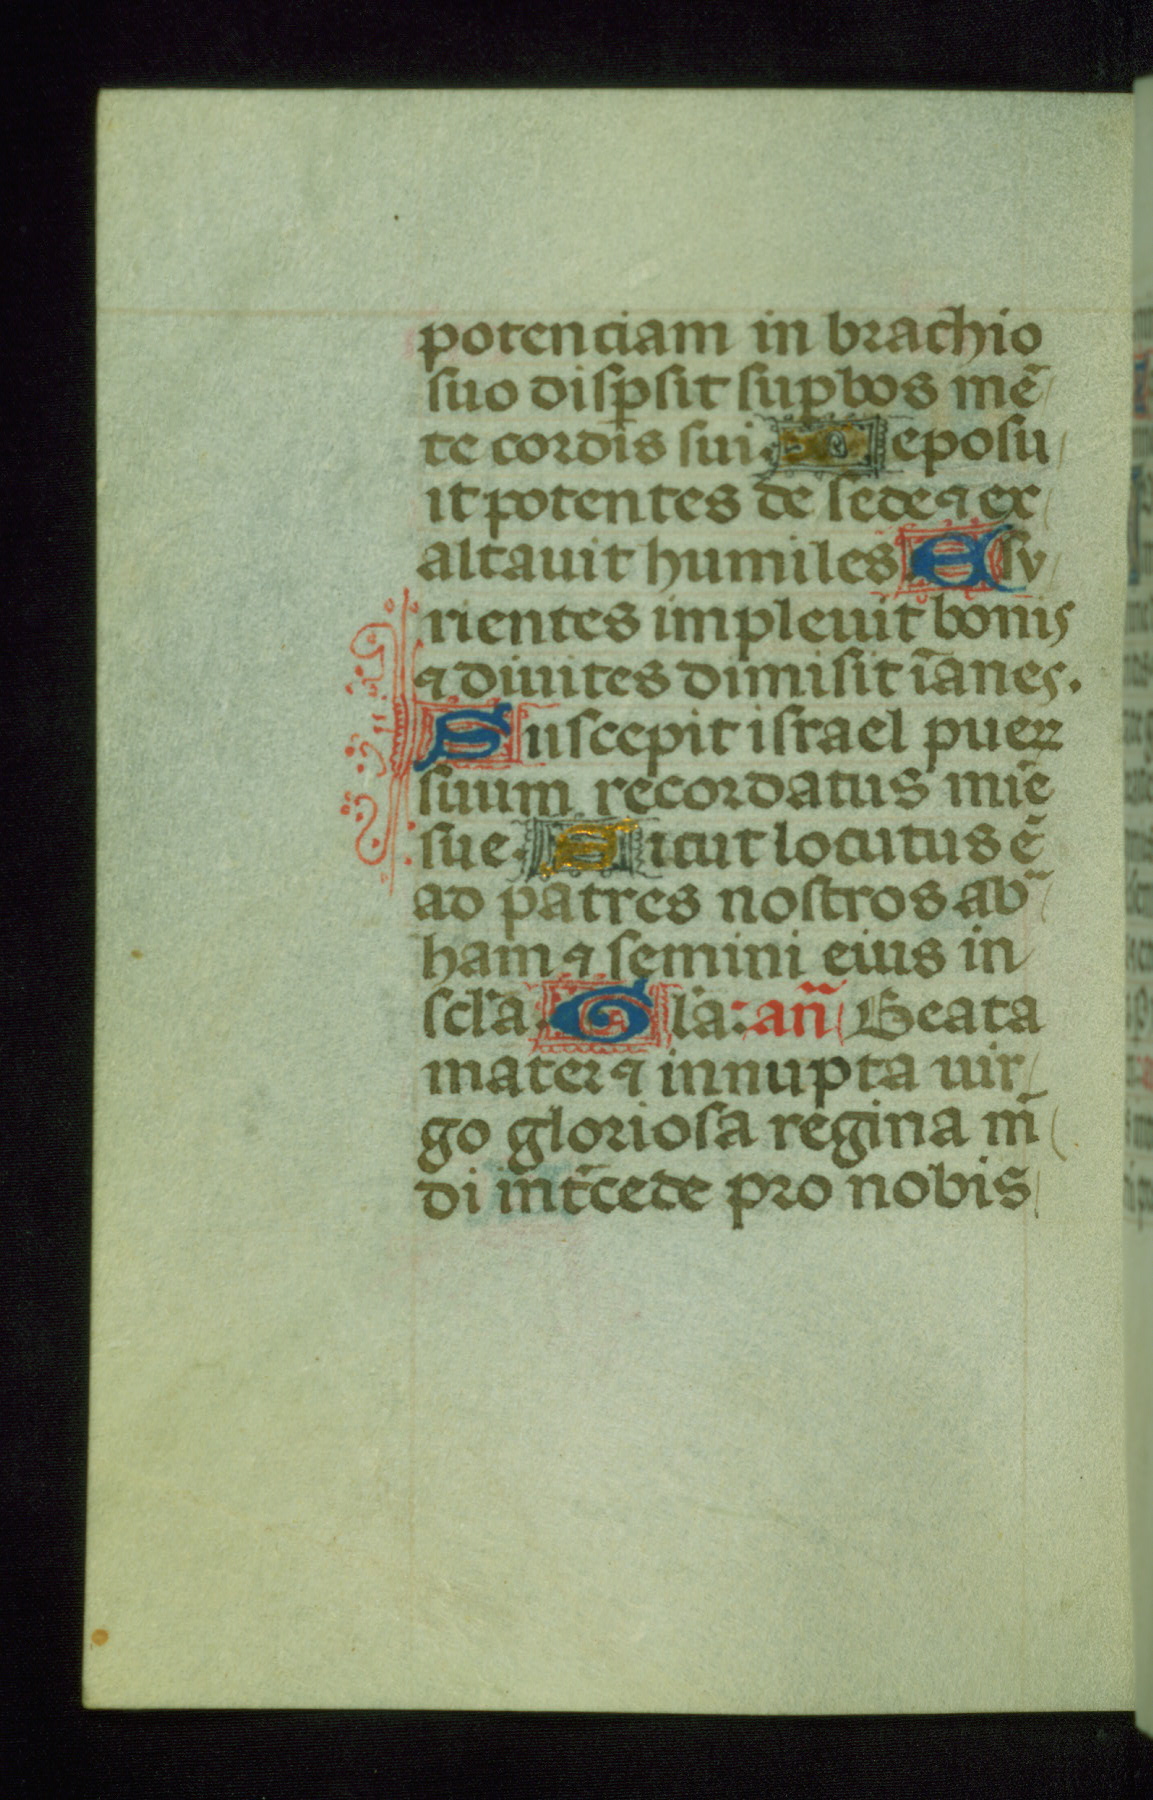 potenciam in brachio
suo disp̱sit sup̱bos mẽ
te cordis sui. Deposu
it potentes de sede ⁊ ex
altauit humiles Esu
rientes impleuit bonis
⁊ diuites dimisit ĩanes.
Suscepit israel pueꝝ
suum recordatus mĩe
sue. Sicut locutus ẽ
ad patres nostros ab̃
ham ⁊ semini eius in
scl̃a. Gl̃a: añ Beata
mater ⁊ innupta uir
go gloriosa regina mũ
di int̃cede pro nobis